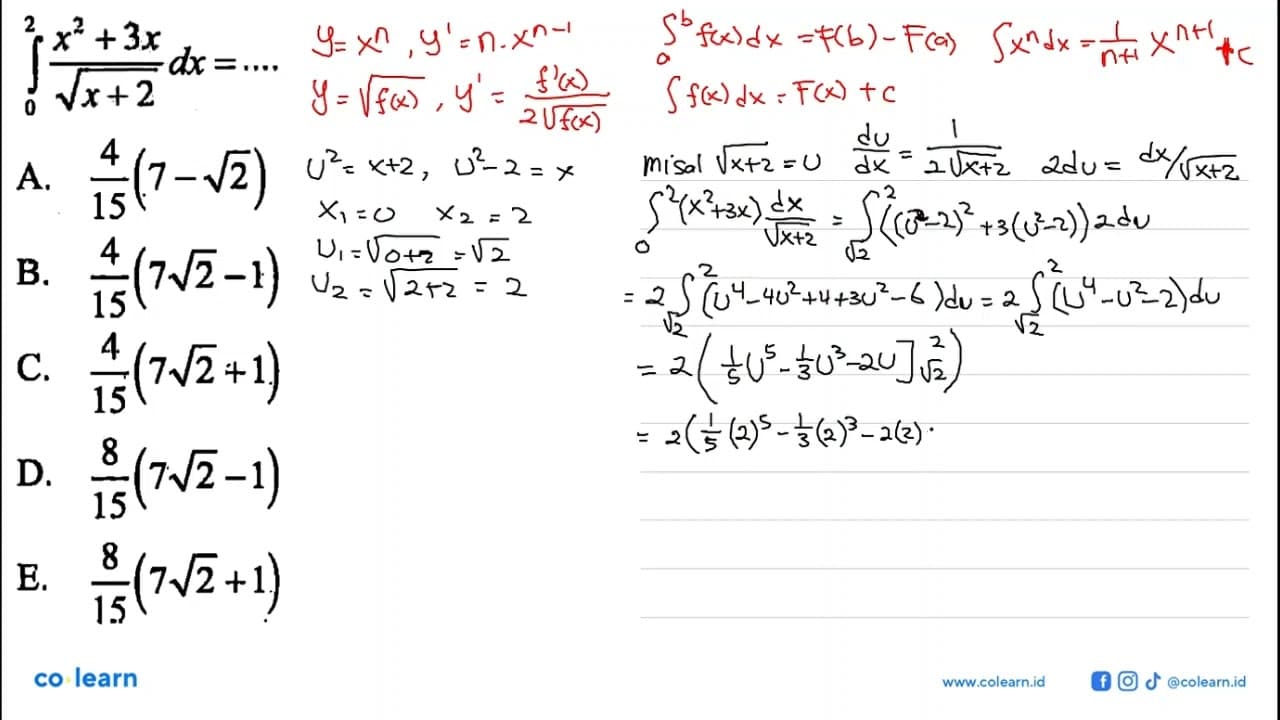 ∫₀² (x² + 3x)/√(x + 2) dx = ....
A. 4/15 (7 − √2)
B. 4/15 (7√2 − 1)
C. 4/15 (7√2 + 1)
D. 8/15 (7√2 − 1)
E. 8/15 (7√2 + 1)
y = xⁿ, y' = n · xⁿ⁻¹
y = √f(x), y' = f'(x)/(2√f(x))
∫₀ᵇ f(x) dx = F(b) − F(a)
∫ xⁿ dx = 1/(n+1) xⁿ⁺¹ + c
∫ f(x) dx = F(x) + c
U² = x+2, U² − 2 = x
x₁ = 0 x₂ = 2
U₁ = √(0+2) = √2
U₂ = √(2+2) = 2
misal √(x+2) = U du/dx = 1/(2√(x+2)) 2du = dx/√(x+2)
∫₀² (x²+3x) dx/√(x+2) = ∫_√2² ((U²−2)² + 3(U²−2)) 2du
= 2 ∫_√2² (U⁴ − 4U² + 4 + 3U² − 6) du = 2 ∫_√2² (U⁴ − U² − 2) du
= 2 (1/5 U⁵ − 1/3 U³ − 2U]_√2²)
= 2(1/5 (2)⁵ − 1/3 (2)³ − 2(2)
co learn
www.colearn.id
@colearn.id